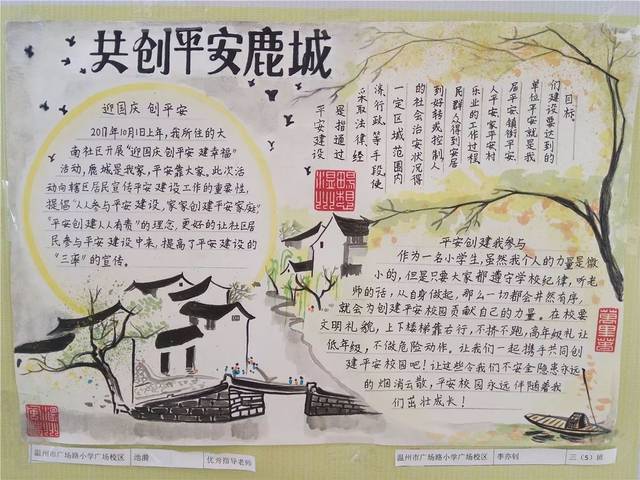 共创平安鹿城
迎国庆 创平安
2017年10月1日上午,我所住的大
南社区开展“迎国庆 创平安 建幸福”
活动,鹿城是我家,平安靠大家。此次活
动向辖区居民宣传平安建设工作的重要性,
提倡“人人参与平安建设,家家创建平安家庭”
“平安创建人人有责”的理念,更好的让社区居
民参与平安建设中来,提高了平安建设的
“三率”的宣传。
目标:
们建设要达到的
单位平安就是我
居平安镇街平安
人平安家平安村
乐业的工作过程
民群众得到安居
到好转或控制人
的社会治安状况得
一定区域范围内
济行政等手段使
采取法律经
是指通过
平安建设
平安创建我参与
作为一名小学生,虽然我个人的力量是微
小的,但是只要大家都遵守学校纪律,听老
师的话,从自身做起,那么一切都会井然有序,
就会为创建平安校园贡献自己的力量。在校要
文明礼貌,上下楼梯靠右行,不挤不跑,高年级礼让
低年级,不做危险动作。让我们一起携手共同创
建平安校园吧!让这些令我们不安全隐患永远
的烟消云散,平安校园永远伴随着我
们茁壮成长!
温州市广场路小学广场校区 池漪 优秀指导老师
温州市广场路小学广场校区 李亦钊 三(5)班